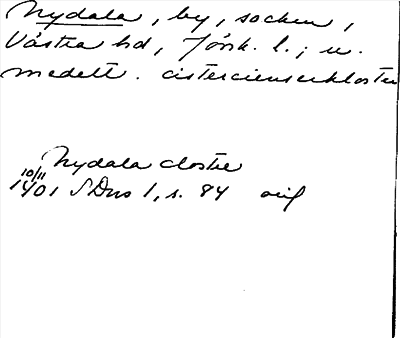 Nydala, by, socken,
Västra hd, Jönk. l.; u.
medelt. cistercienserkloster
Nydala closte
10/11
1401 SDns 1, s. 84 orig